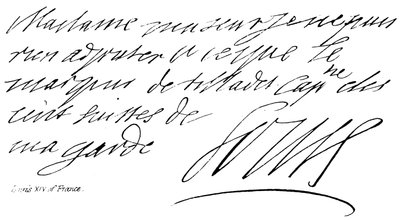 Madame ma seur Je ne puis
rien adjouter a ce que le
marquis de tilladet Capne des
cent suisses de
ma garde
Louis
Louis XIV. of France.